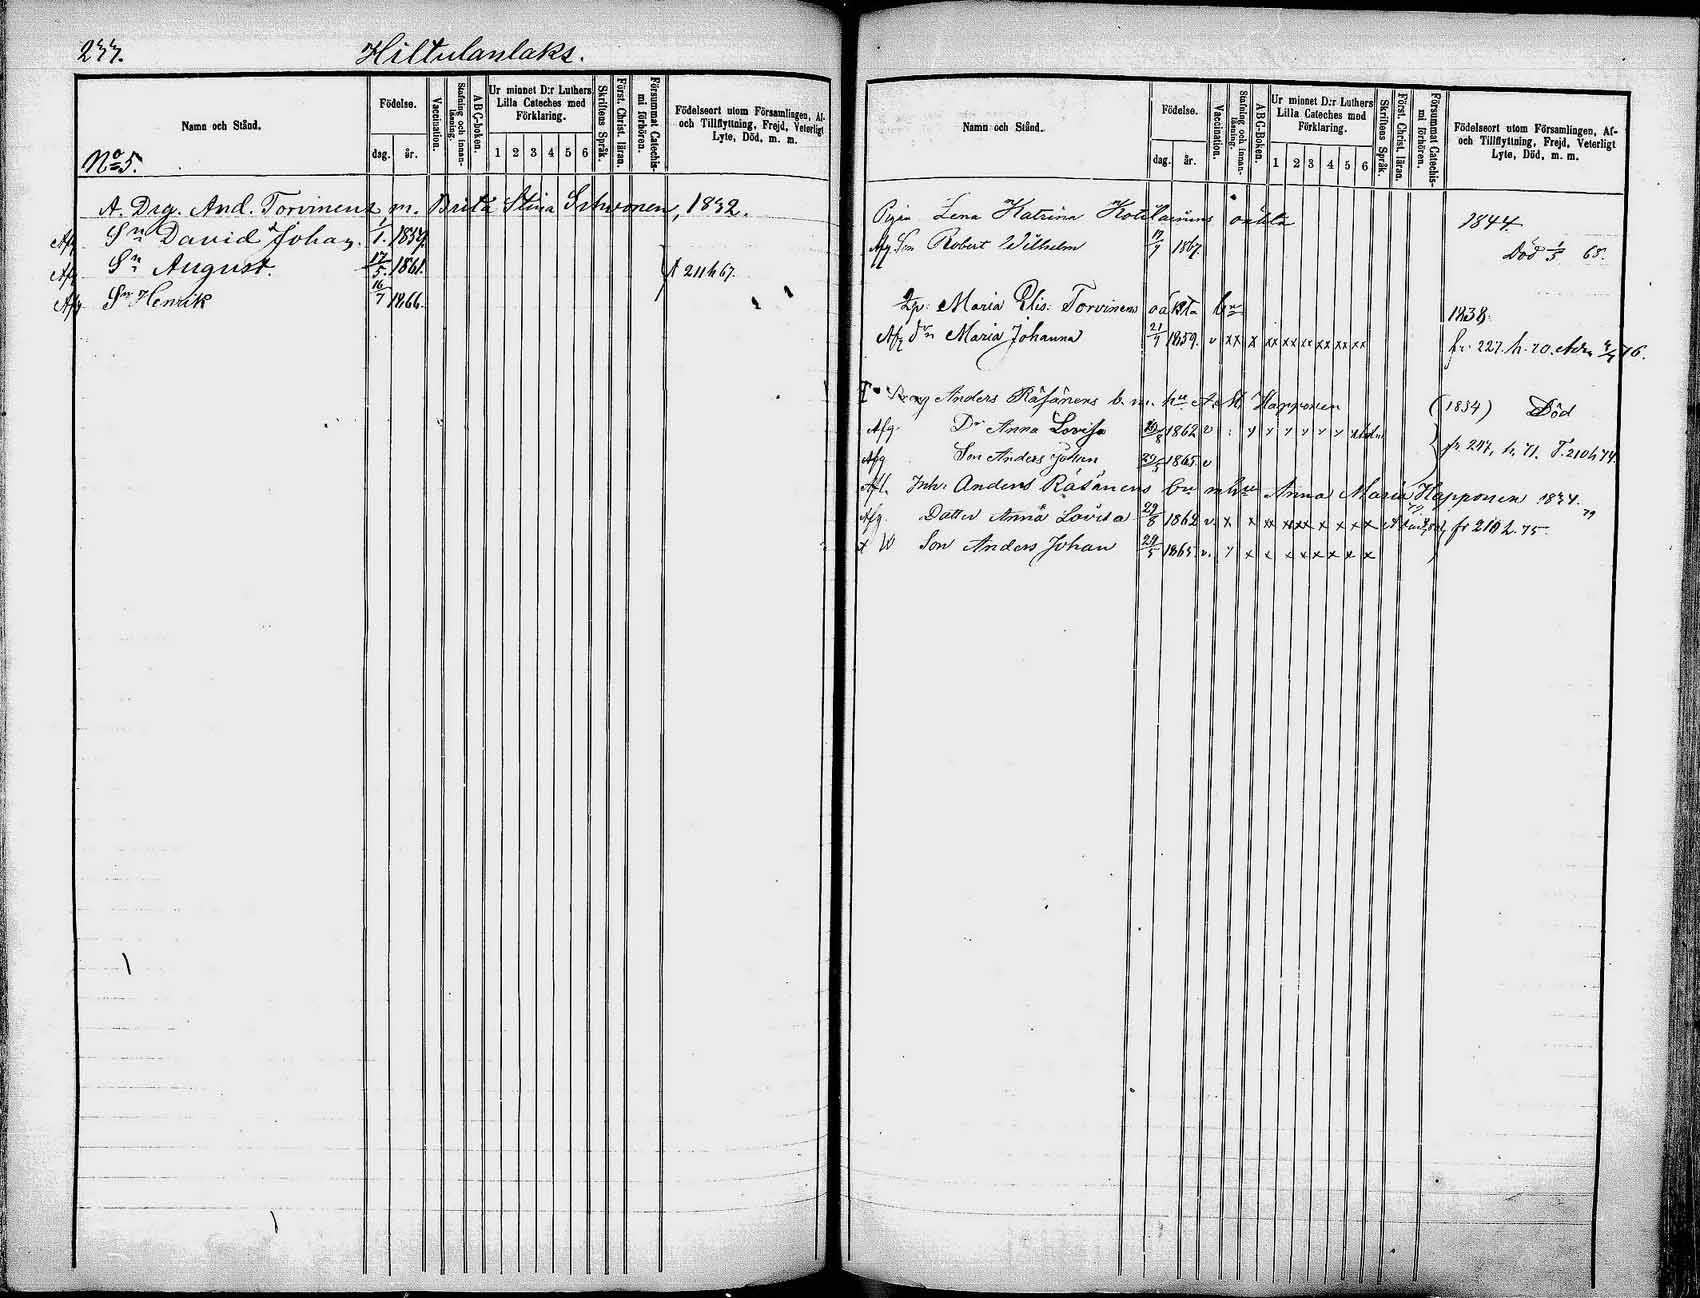 277. Hiltulanlaks.
Namn och Stånd.
Födelse.
dag. år.
Vaccination.
Stafning och innan-läsning.
ABC-boken.
Ur minnet D:r Luthers Lilla Cateches med Förklaring.
1 2 3 4 5 6
Skriftens Språk.
Först. Christ. läran.
Försummat Catechis-mi förhören.
Födelseort utom Församlingen, Af- och Tillflyttning, Frejd, Veterligt Lyte, Död, m. m.
No 5.
A. Drg. And. Torvinens m. Brita Stina 1832.
Afg Sn David Johan. 1/1. 1859.
Afg Sn August. 17/5. 1861. t 211 h 67.
Afg Sn Henrik 16/7 1866.
Namn och Stånd.
Födelse.
dag. år.
Vaccination.
Stafning och innan-läsning.
ABC-Boken.
Ur minnet D:r Luthers Lilla Cateches med Förklaring.
1 2 3 4 5 6
Skriftens Språk.
Först. Christ. läran.
Försummat Catechis-mi förhören.
Födelseort utom Församlingen, Af- och Tillflyttning, Frejd, Veterligt Lyte, Död, m. m.
Pigan Lena Katrina oäkta 1844.
Afg Son Robert Wilhelm 1867. Död 1/5 68.
Qp: Maria Elis: Torvinens oäkta 1838.
Afg dr Maria Johanna 21/9 1859. v xx x xx xx xx xx xx xx fr. 227. h. 70. 76.
Anders Räsänens b. m. hu A. M. Happonen (1834) Död
Afg. Dr Anna Lovisa 29/8 1862 v
Afg Son Anders Johan 29/5 1865. v fr. 247, h. 71. T. 210 h 74.
Afl. Inh. Anders Räsänens bn m hu Anna Maria Happonen 1834.
Afg. Dotter Anna Lovisa 29/8 1862 v. x x xx xx x x x x fr 210 h. 75. 79
x Son Anders Johan 29/5 1865. v. x x x x x x x x